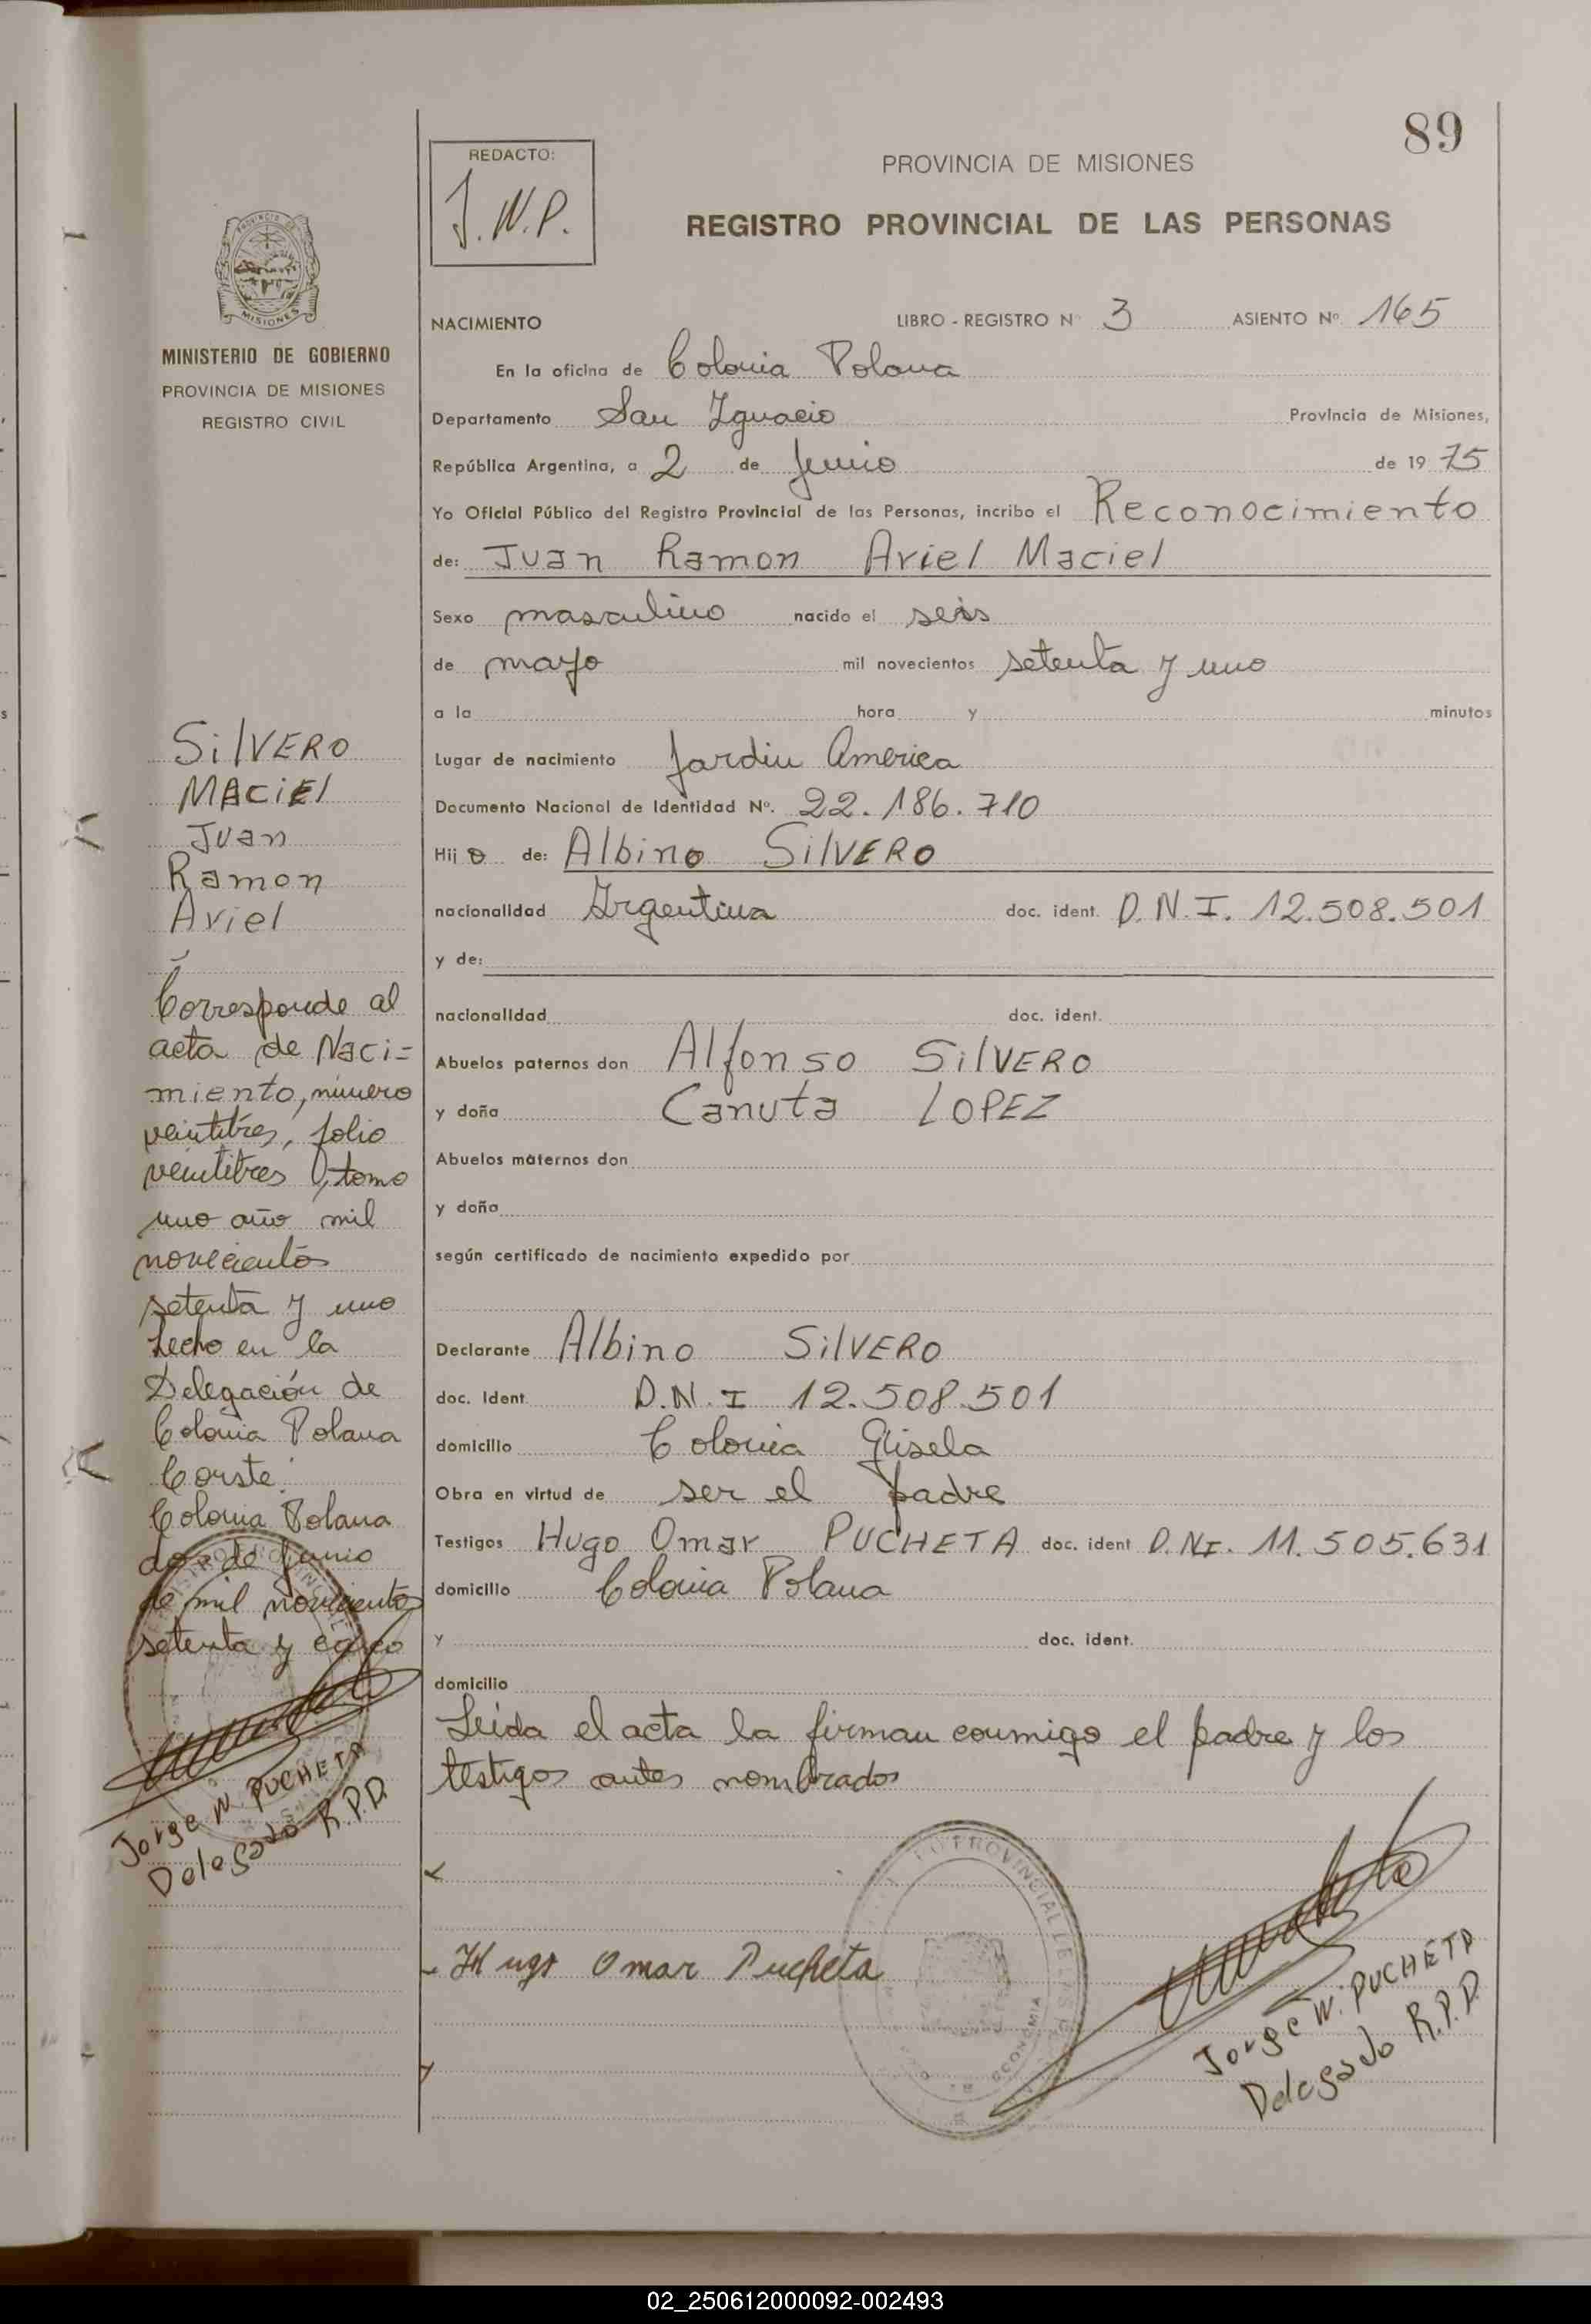 89
REDACTO:
J.W.P.
PROVINCIA DE MISIONES
REGISTRO PROVINCIAL DE LAS PERSONAS
MISIONES
MINISTERIO DE GOBIERNO
PROVINCIA DE MISIONES
REGISTRO CIVIL
NACIMIENTO LIBRO - REGISTRO Nº 3 ASIENTO Nº. 165
En la oficina de Colonia Polana
Departamento San Ignacio Provincia de Misiones,
República Argentina, a 2 de Junio de 19 75
Yo Oficial Público del Registro Provincial de las Personas, incribo el Reconocimiento
de: Juan Ramon Ariel Maciel
Sexo masculino nacido el seis
de mayo mil novecientos setenta y uno
a la hora y minutos
Lugar de nacimiento Jardin America
Documento Nacional de Identidad Nº. 22.186.710
Hij o de: Albino SilVERO
nacionalidad Argentina doc. ident. D.N.I. 12.508.501
y de:
nacionalidad doc. ident.
Abuelos paternos don Alfonso SilVERO
y doña Canuta LOPEZ
Abuelos maternos don
y doña
según certificado de nacimiento expedido por
Declarante Albino SilVERO
doc. Ident. D.N.I 12.508.501
domicilio Colonia Gisela
Obra en virtud de ser el padre
Testigos Hugo Omar PUCHETA doc. ident D.NI. 11.505.631
domicilio Colonia Polana
y doc. ident.
domicilio
Leida el acta la firman conmigo el padre y los
testigos antes nombrados
Hugo Omar Pucheta
Jorge W. PUCHETA
Delegado R.P.P.
SilVERO
MACiEl
Juan
Ramon
Ariel
Corresponde al
acta de Naci=
miento, número
veintitres, folio
veintitres, tomo
uno año mil
novecientos
setenta y uno
hecho en la
Delegación de
Colonia Polana
Conste.
Colonia Polana
dos de junio
de mil novecientos
setenta y cinco
Jorge W. PUCHETA
Delegado R.P.P.
02_250612000092-002493